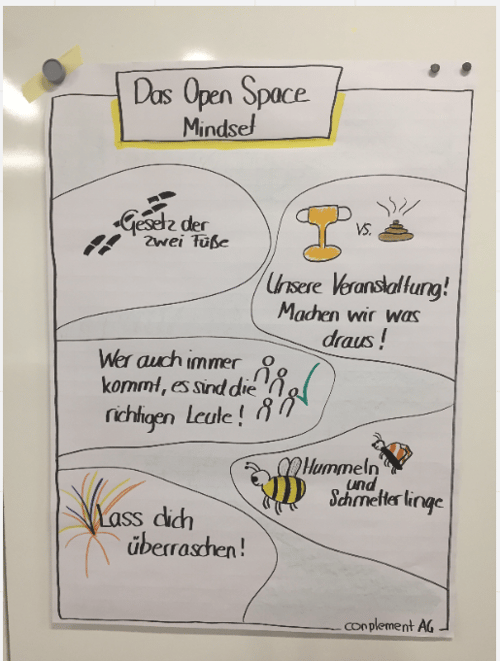 Das Open Space
Mindset
Gesetz der
zwei Füße
vs.
Unsere Veranstaltung!
Machen wir was
draus!
Wer auch immer
kommt, es sind die
richtigen Leute!
Hummeln
und
Schmetterlinge
Lass dich
überraschen!
conplement AG